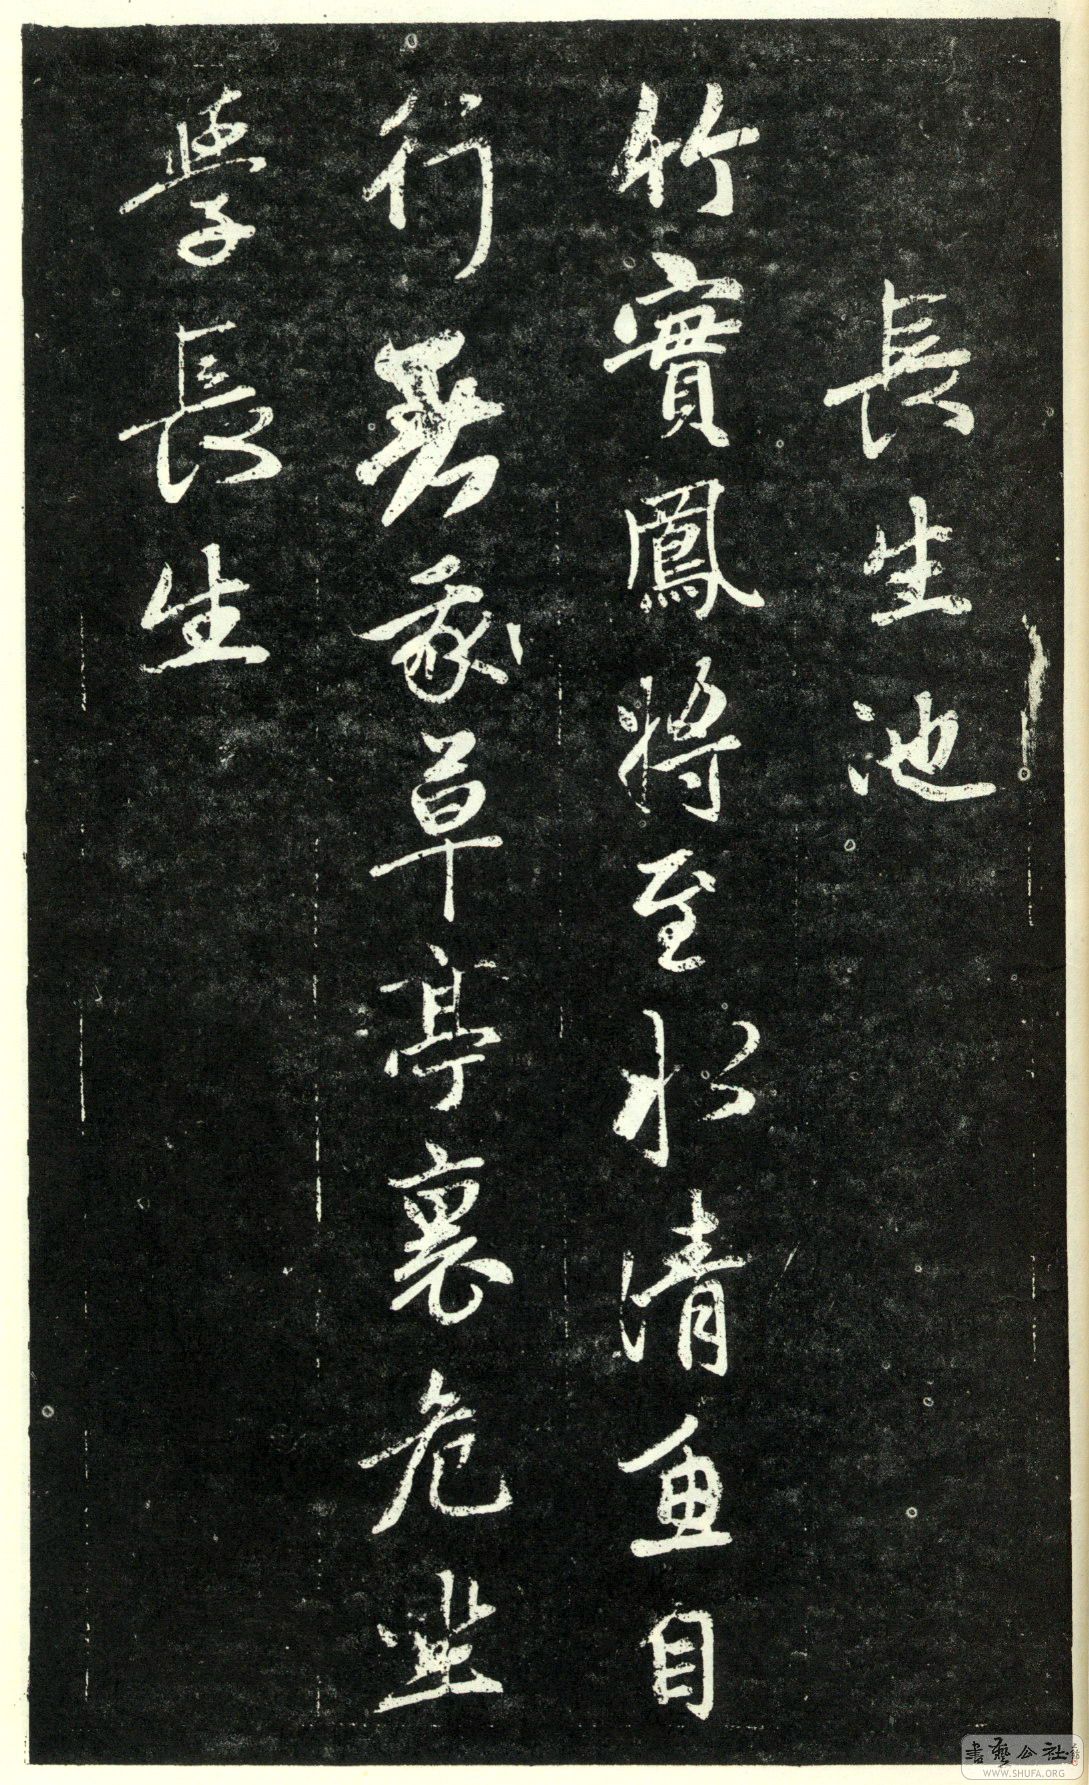 長生池
竹實鳳將至水清魚自
行若家草亭裏危坐
學長生
書藝公社
WWW.SHUFA.ORG